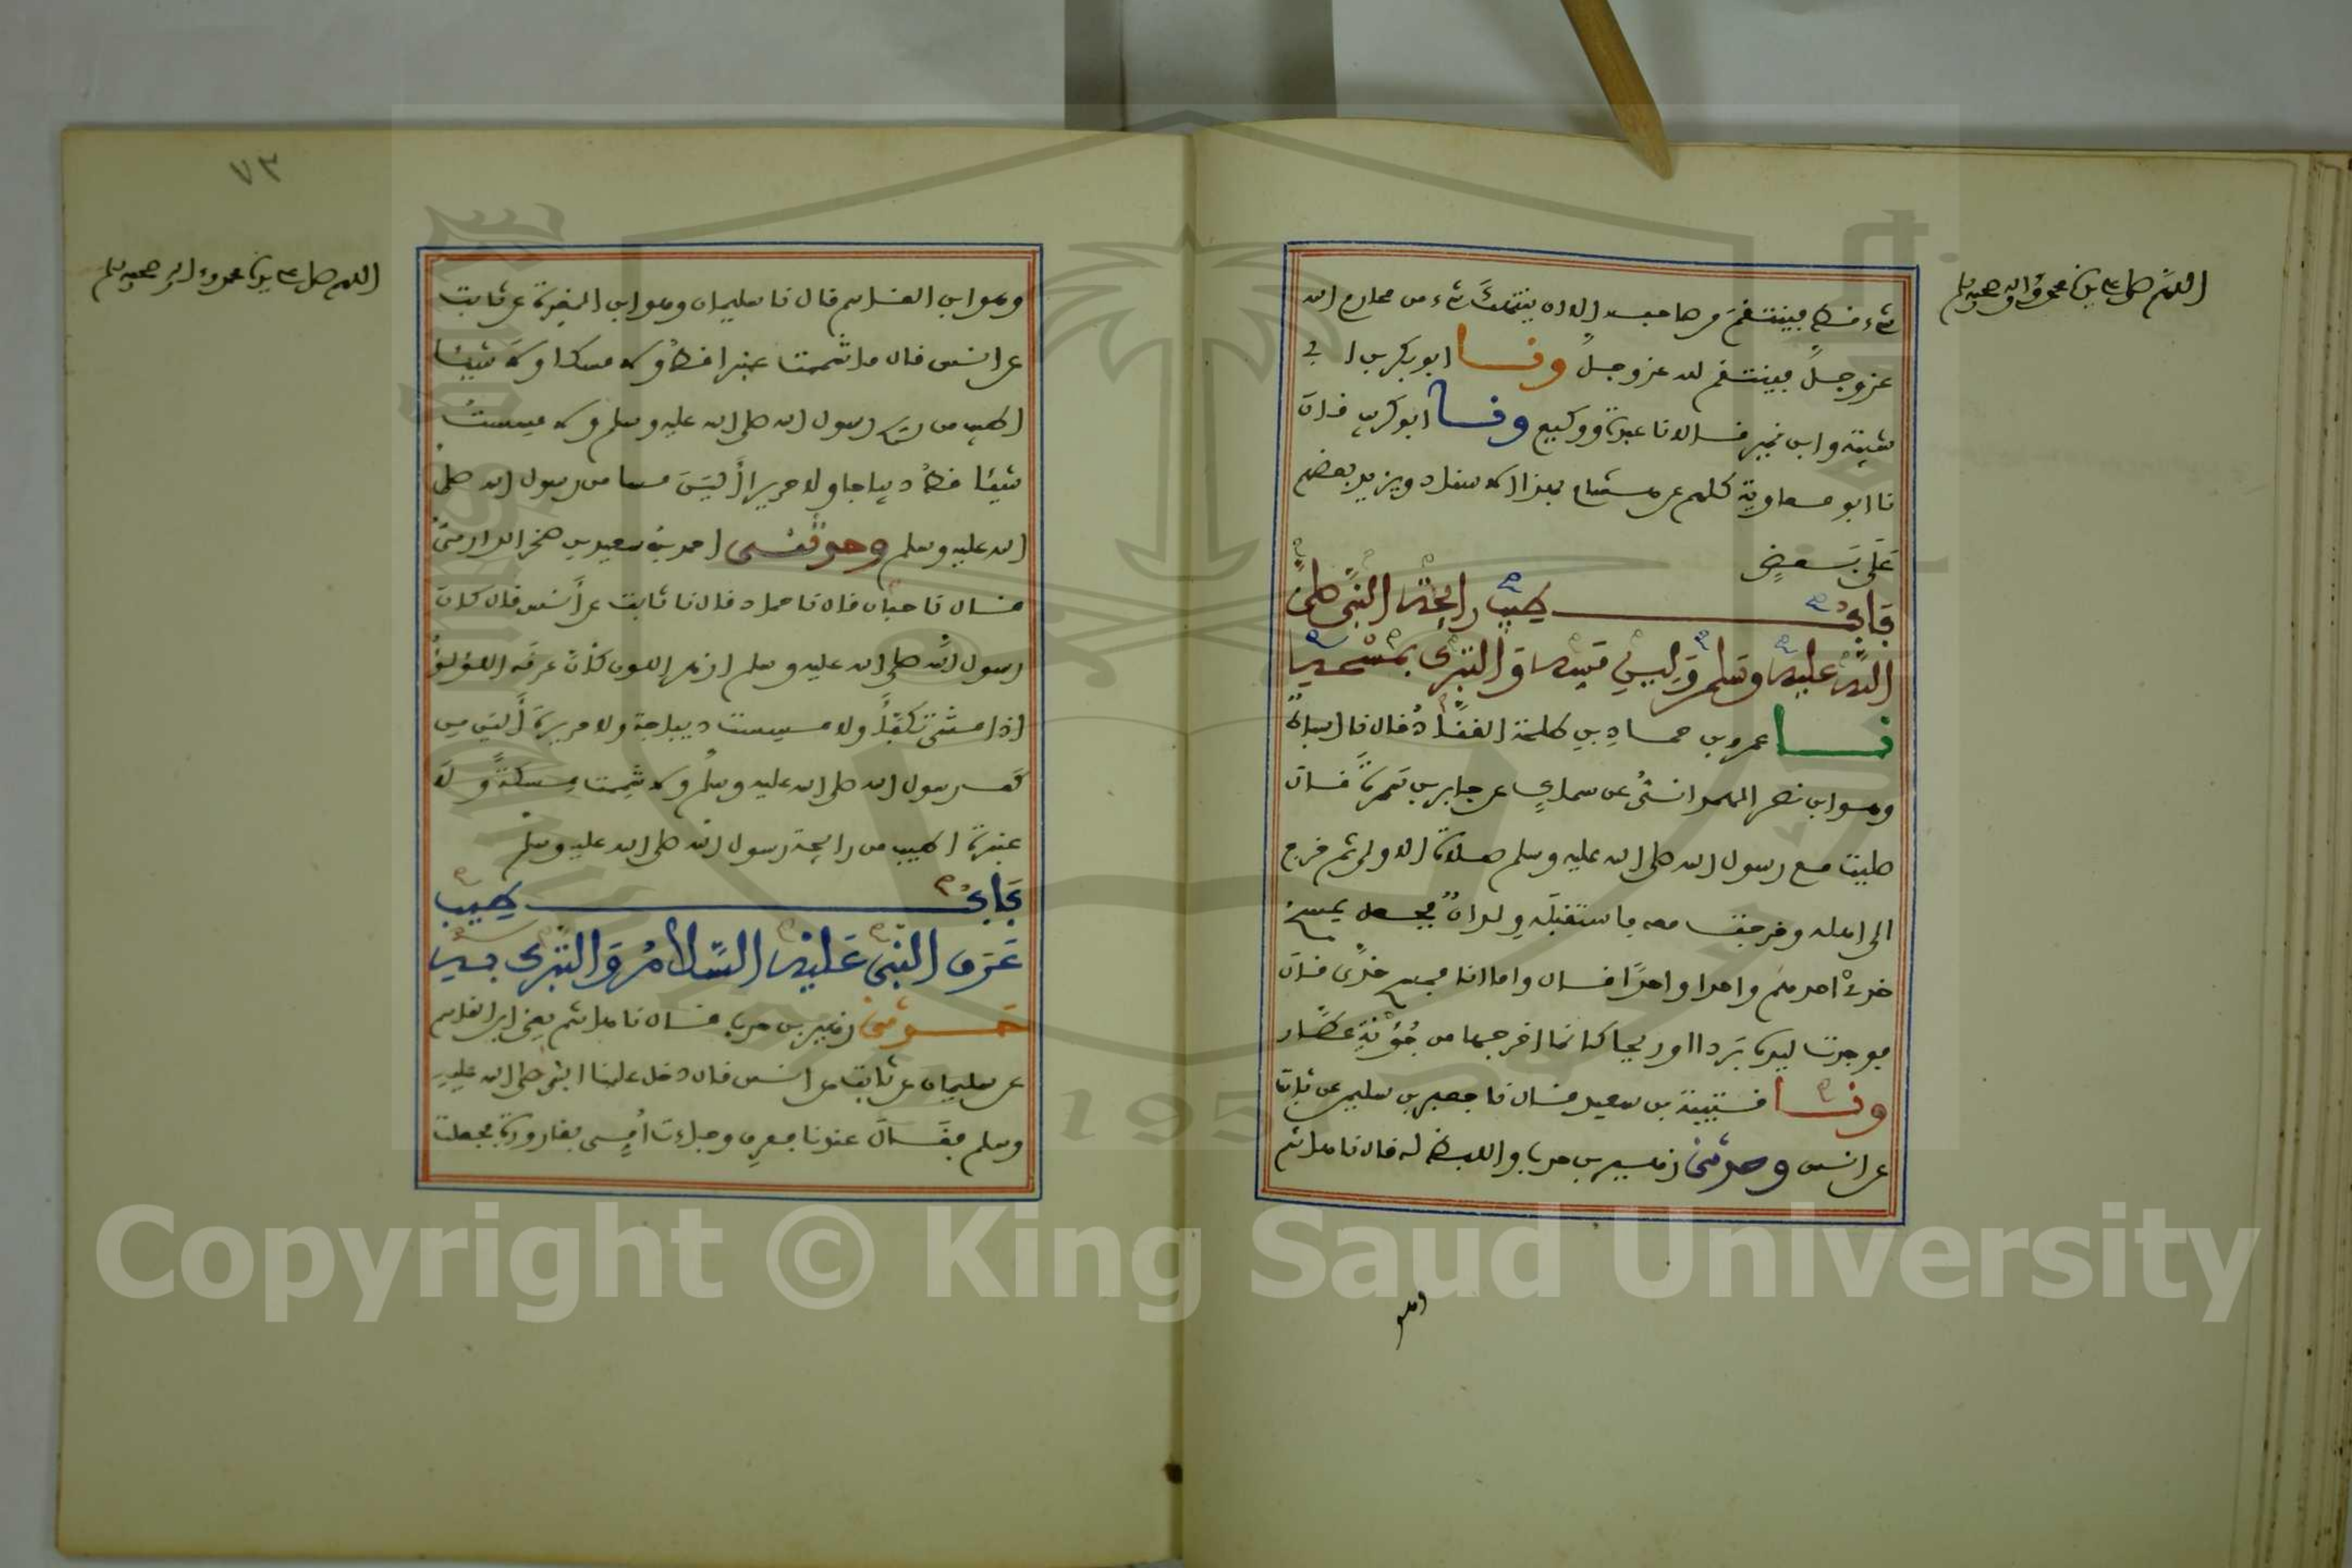 اللهم صل على سيدنا محمد وءاله وصحبه وسلم
شيء قط فينتقم من صاحبه الا ان ينتهك شيء من محارم الله
عز وجل فينتقم لله عز وجل ونا ابو بكر بن ابي
شيبة وابن نمير قالا نا عبدة ووكيع ونا ابو كريب قال
نا ابو معاوية كلهم عن هشام بهذا الاسناد ويزيد بعضهم
على بعض
باب طيب رايحة النبي صلى
الله عليه وسلم ولين مسه والتبرك بمسحه
نا عمرو بن حماد بن طلحة القناد قال نا اسباط
وهو ابن نصر الهمداني عن سماك عن جابر بن سمرة قال
صليت مع رسول الله صلى الله عليه وسلم صلاة الاولى ثم خرج
الى اهله وخرجت معه فاستقبله ولدان فجعل يمسح
خدي احدهم واحدا واحدا قال واما انا فمسح خدي قال
فوجدت ليده بردا او ريحا كانما اخرجها من جؤنة عطار
ونا قتيبة بن سعيد قال نا جعفر بن سليمن عن ثابت
عن انس وحدثني زهير بن حرب واللفظ له قال نا هاشم
وهو
٧٣
اللهم صل على سيدنا محمد وءاله وصحبه وسلم
وهو ابن القاسم قال نا سليمان وهو ابن المغيرة عن ثابت
عن انس قال ما شممت عنبرا قط ولا مسكا ولا شيئا
اطيب من ريح رسول الله صلى الله عليه وسلم ولا مسست
شيئا قط ديباجا ولا حريرا ألين مسا من رسول الله صلى
الله عليه وسلم وحدثني احمد بن سعيد بن صخر الدارمي
قال نا حبان قال نا حماد قال نا ثابت عن أنس قال كان
رسول الله صلى الله عليه وسلم ازهر اللون كأن عرقه اللؤلؤ
اذا مشى تكفأ ولا مسست ديباجة ولا حريرة ألين من
كف رسول الله صلى الله عليه وسلم ولا شممت مسكة ولا
عنبرة اطيب من رايحة رسول الله صلى الله عليه وسلم
باب طيب
عرق النبي عليه السلام والتبرك به
حدثني زهير بن حرب قال نا هاشم يعني ابن القاسم
عن سليمان عن ثابت عن انس قال دخل علينا النبي صلى الله عليه
وسلم فقال عندنا فعرق وجاءت أمي بقارورة فجعلت
Copyright © King Saud University
195